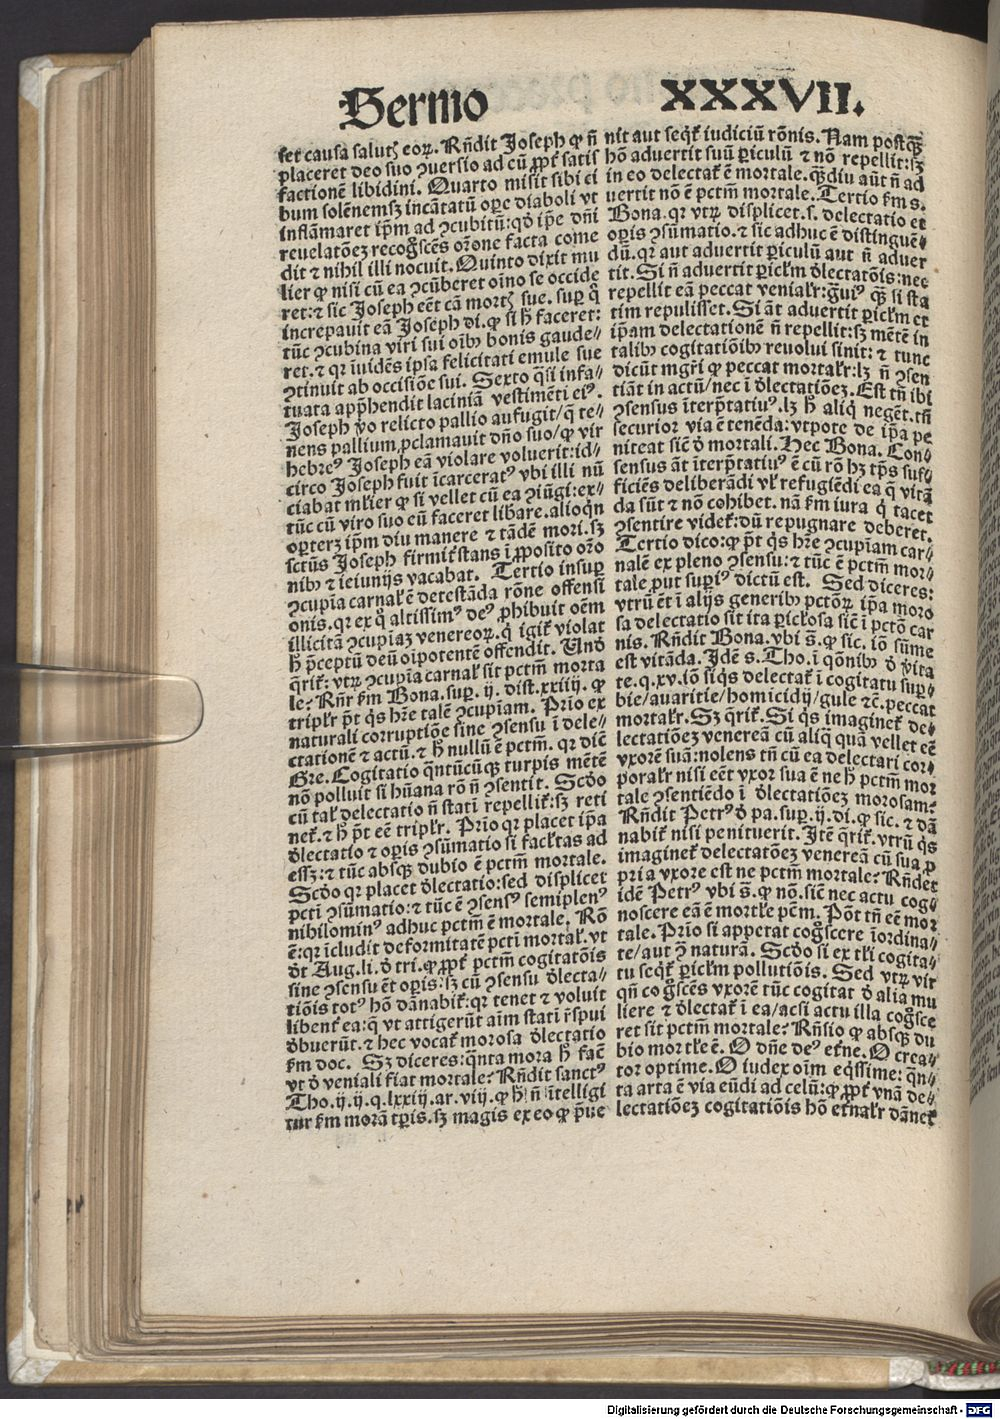 Sermo XXXVII.
set causa salutꝭ eoꝝ. Rñdit Joseph ꝙ ñ
placeret deo suo ꝯuersio ad eū ꝓpť satis
factionē libidini. Quarto misit sibi ci
bum solēnemqꝫ incātatū oꝑe diaboli vt
inflāmaret ip̄m ad ꝯcubitū: qd̓ ip̄e dn̄i
reuelatōeꝫ recogͦscēs or̄one facta come
dit ⁊ nihil illi nocuit. Quinto dixit mu
lier ꝙ nisi cū ea ꝯcūberet oīno se occide
ret: ⁊ sic Joseph eēt cā mortꝭ sue. suꝑ qͦ
increpauit eā Joseph di. ꝙ si ħ faceret:
tūc ꝯcubina viri sui oībꝰ bonis gaude⸗
ret. ⁊ qꝛ īuidēs ipsa felicitati emule sue
ꝯtinuit ab occisiōe sui. Sexto qͣsi infa⸗
tuata app̄hendit laciniā vestimēti eiꝰ.
Joseph ṽo relicto pallio aufugit/ q̄ te⸗
nens pallium ꝓclamauit dño suo/ ꝙ vir
hebreꝰ Joseph eā violare voluerit: id⸗
circo Joseph fuit īcarceratꝰ vbi illi nū
ciabat mƚier ꝙ si vellet cū ea ꝯiūgi: ex⸗
tūc cū viro suo eū faceret liƀare. alioqn̄
oꝑterꝫ ip̄m diu manere ⁊ tādē mori. sꝫ
sctūs Joseph firmiť stans ī ꝓposito or̄o
nibꝰ ⁊ ieiunijs vacabat. Tertio insuꝑ
ꝯcupīa carnaƚ ē detestāda rōne offensi
onis. qꝛ ex qͦ altissimꝰ deꝰ ꝓhibuit oēm
illicitā ꝯcupīaꝫ venereoꝝ. qͥ igiť violat
ħ p̄ceptū deū oīpotentē offendit. Und̓
q̄riť: vtꝝ ꝯcupīa carnaƚ sit pctm̄ morta
le? Rñr ẜm Bona. suꝑ .ij. dist. xxiiij. ꝙ
tripƚr pt̄ qͥs hr̄e talē ꝯcupīam. Prīo ex
naturali corruptiōe sine ꝯsensu ī dele⸗
ctationē ⁊ actū. ⁊ ħ nullū ē pctm̄. qꝛ dīc
Gre. Cogitatio qn̄tūcūqꝫ turpis mētē
nō polluit si hūana rō ñ ꝯsentit. Scd̓o
cū taƚ delectatio ñ statī repelliť: sꝫ reti
neť. ⁊ ħ pt̄ eē tripƚr. Prīo qꝛ placet ip̄a
d̓lectatio ⁊ oꝑis ꝯsūmatio si facƚtas ad
essꝫ: ⁊ tūc absqꝫ dubio ē pctm̄ mortale.
Scd̓o qꝛ placet d̓lectatio: sed displicet
pctī ꝯsūmatio: ⁊ tūc ē ꝯsensꝰ semiplenꝰ
nihilominꝰ adhuc pctm̄ ē mortale. Rō
ē: qꝛ īcludit deformitatē pctī mortaƚ. vt
d̓t Aug. li. d̓ tri. ꝙ ꝓpť pctm̄ cogitatōis
sine ꝯsensu ēt oꝑis: sꝫ cū ꝯsensu d̓lecta⸗
tiōis totꝰ hō dānabiť: qꝛ tenet ⁊ voluit
libenť ea: q̄ vt attigerūt aīm statī r̄spui
d̓buerūt. ⁊ hec vocať morosa d̓lectatio
ẜm doc. Sꝫ diceres: qn̄ta mora ħ facͥ
vt d̓ veniali fiat mortale? Rñdit sanctꝰ
Tho. ij. ij. q. lxxiij. ar. viij. ꝙ ħ ñ ītelligi
tur ẜm morā tꝑis. sꝫ magis ex eo ꝙ p̄ue
nit aut seqť iudiciū rōnis. Nam postqͣꝫ
hō aduertit suū ꝑiculū ⁊ nō repellit: sꝫ
in eo delectať ē mortale. qͣꝫdiu aūt ñ ad
uertit nō ē pctm̄ mortale. Tertio ẜm s.
Bona. qꝛ vtꝝ displicet. s. delectatio et
oꝑis ꝯsūmatio. ⁊ sic adhuc ē distinguē⸗
dū. qꝛ aut aduertit ꝑiculū aut ñ aduer
tit. Si ñ aduertit ꝑicƚm d̓lectatōis: nec
repellit eā peccat veniaƚr: gͣuiꝰ qͣꝫ si sta
tim repulisset. Si āt aduertit ꝑicƚm et
ip̄am delectationē ñ repellit: sꝫ mētē in
talibꝰ cogitatiōibꝰ reuolui sinit: ⁊ tunc
dicūt mgr̄i ꝙ peccat mortaƚr: lꝫ ñ ꝯsen
tiāt in actū/ nec ī d̓lectatiōeꝫ. Est tn̄ ibi
ꝯsensus īterp̄tatiuꝰ. lꝫ ħ aliqͥ negēt. tn̄
securior via ē tenēda: vtpote de ip̄a pe
niteat sic̄ d̓ mortali. Hec Bona. Con⸗
sensus āt īterp̄tatiuꝰ ē cū rō hꝫ tp̄s suf⸗
ficiēs deliberādi vƚ refugiēdi ea q̄ vitā
da sūt ⁊ nō cohibet. nā ẜm iura qͥ tacet
ꝯsentire videť: dū repugnare deberet.
Tertio dico: ꝙ pt̄ qͥs hr̄e ꝯcupīam car⸗
nalē ex pleno ꝯsensu: ⁊ tūc ē pctm̄ mor⸗
tale ꝓut supͥꝰ dictū est. Sed diceres:
vtrū ēt ī alijs generibꝰ pctōꝝ ip̄a moro
sa delectatio sit ita ꝑicƚosa sic̄ ī pctō car
nis. Rñdit Bona. vbi s̄. ꝙ sic. iō sūme
est vitāda. Idē s. Tho. ī qōnibꝰ d̓ ṽita
te. q. xv. iō siqͥs delectať ī cogitatu suꝑ⸗
bie/ auaritie/ homicidij/ gule ⁊c̄. peccat
mortaƚr. Sꝫ q̄riť. Si qͥs imagineť de⸗
lectatiōeꝫ venereā cū aliqͣ quā vellet eē
vxorē suā: nolens tn̄ cū ea delectari cor⸗
poraƚr nisi eēt vxor sua ē ne ħ pctm̄ mor
tale ꝯsentiēdo ī d̓lectatiōeꝫ morosam?
Rñdit Petrꝰ d̓ pa. suꝑ .ij. di. ꝙ sic. ⁊ dā
nabiť nisi penituerit. Itē q̄riť. vtrū qͥs
imagineť delectatōeꝫ venereā cū sua ꝓ
pria vxore est ne pctm̄ mortale? Rñdet
idē Petrꝰ vbi s̄. ꝙ nō. sic̄ nec actu cog⸗
noscere eā ē mortƚe pc̄m. Pōt tn̄ eē mor
tale. Prīo si appetat cogͦscere īordina⸗
te/ aut ꝯͣ naturā. Scd̓o si ex tƚi cogita⸗
tu seqť ꝑicƚm pollutiōis. Sed vtꝝ vir
qn̄ cogͦscēs vxorē tūc cogitat d̓ alia mu
liere ⁊ d̓lectať ī ea/ acsi actu illa cogͦsce
ret sit pctm̄ mortale? Rñsio ꝙ absqꝫ du
bio mortƚe ē. O dn̄e deꝰ eťne. O crea⸗
tor optime. O iudex oīm eqͥssime: qͣn⸗
ta arta ē via eūdi ad celū: ꝙ ꝓpť vnā de⸗
lectatiōeꝫ cogitatiōis hō eťnaƚr dāneť
Digitalisierung gefördert durch die Deutsche Forschungsgemeinschaft - DFG